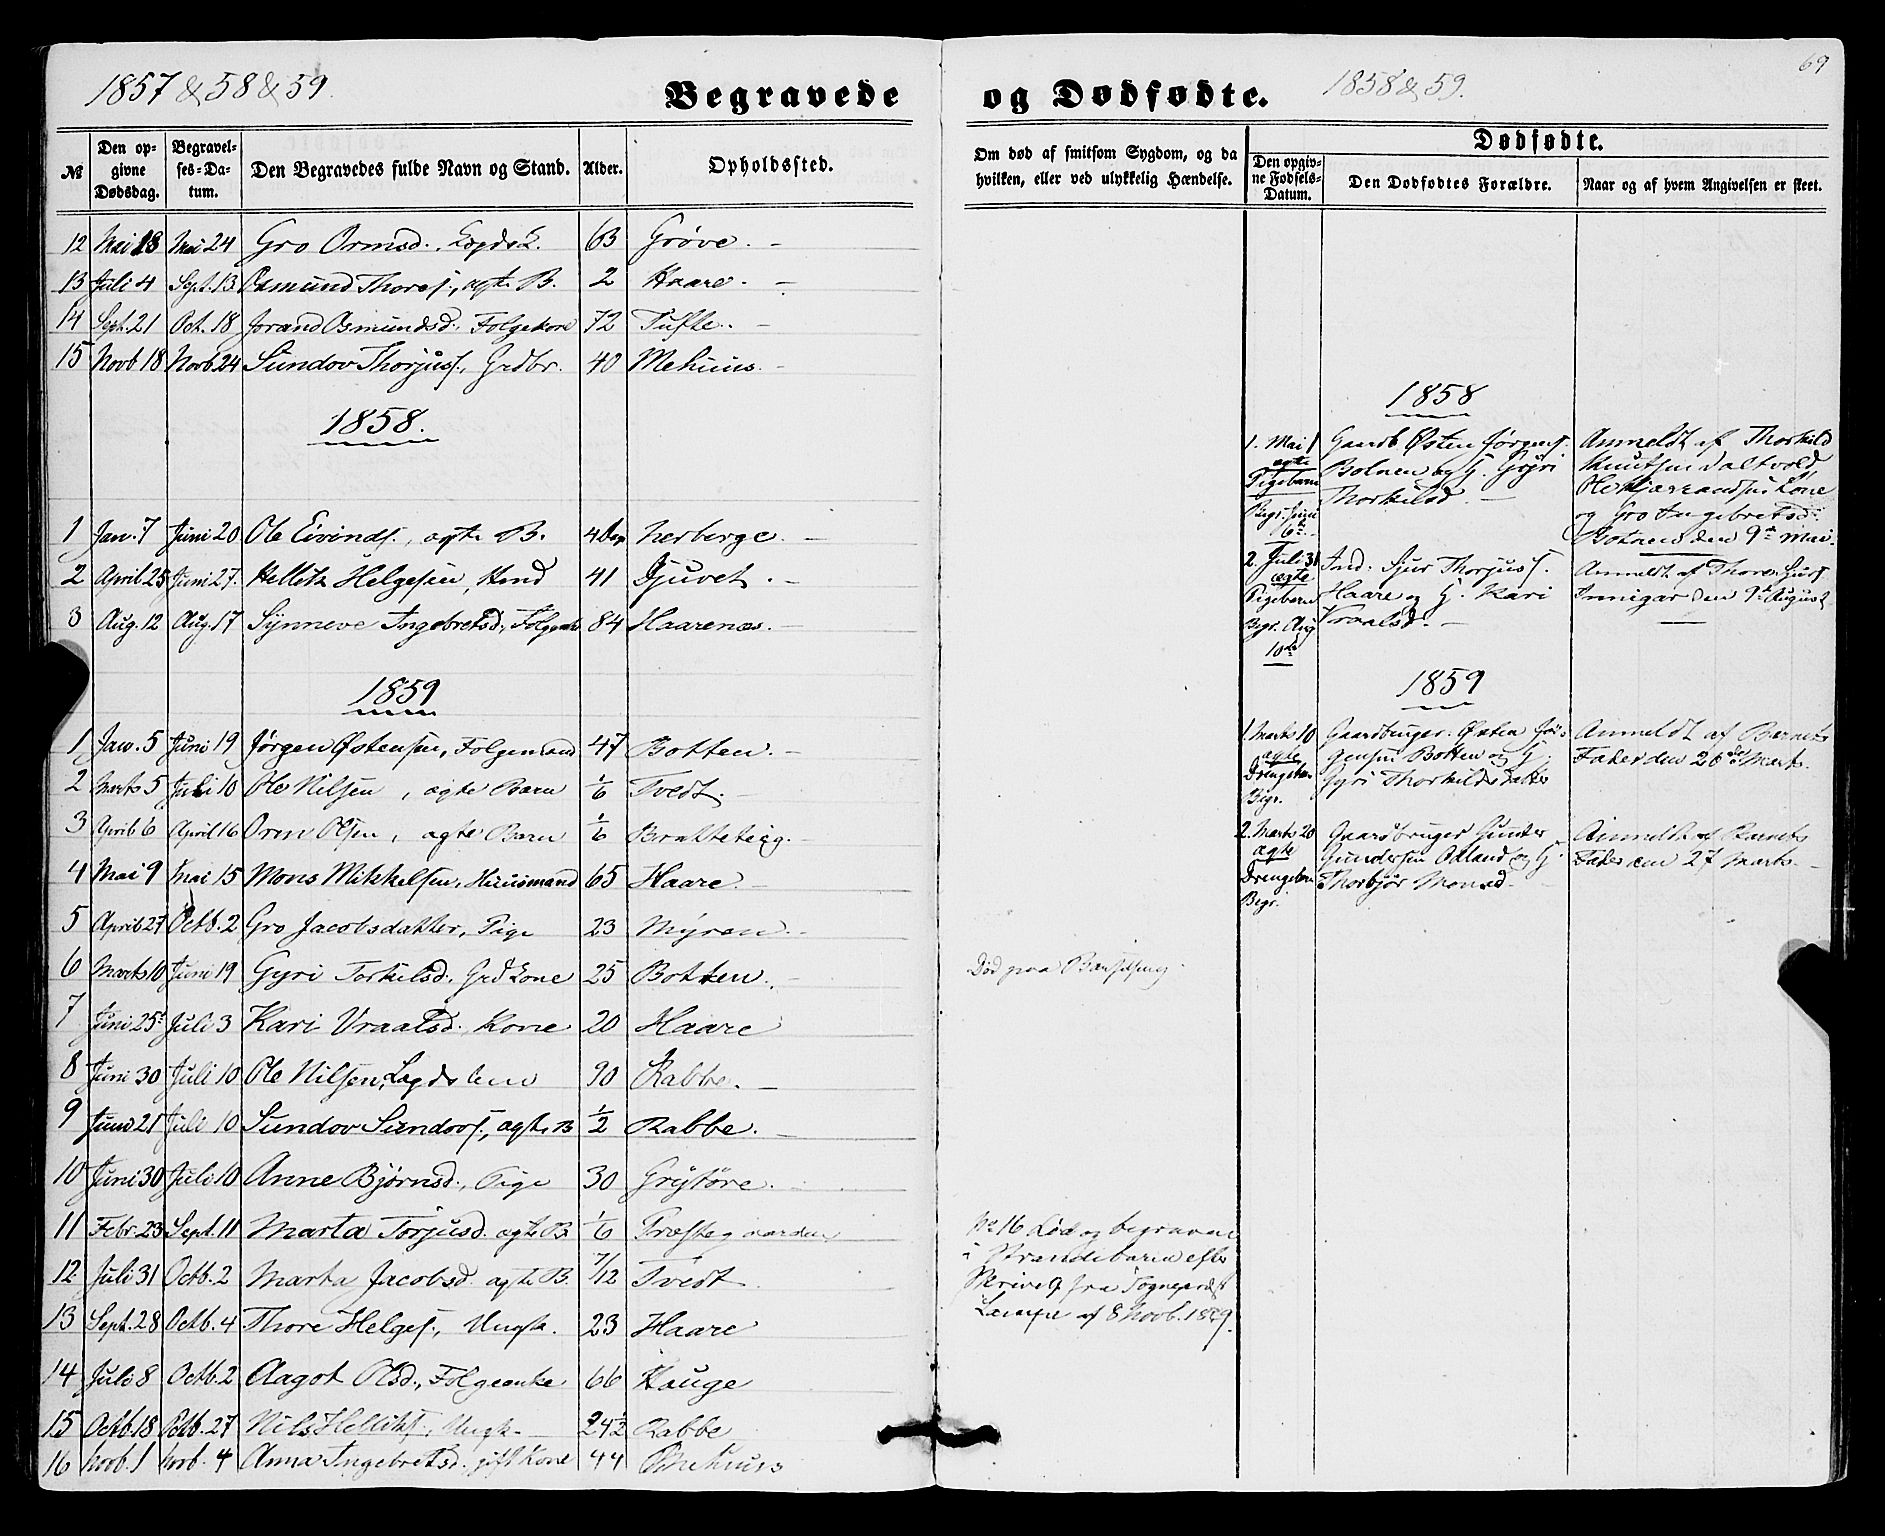 1857 & 58 & 59.
Begravede
№ | Den opgivne Dødsdag. | Begravelses-Datum. | Den Begravedes fulde Navn og Stand. | Alder. | Opholdssted.
12 Mai 18 Mai 24 Gro Ormsd., Lægdsl. 63 Grøve. -
13 Juli 4 Sept. 13 Osmund Thores., ægte B. 2 Haare. -
14 Sept. 21 Oct. 18 Jorand Osmundsd., Folgekone 72 Tufte. -
15 Novb 18 Novb. 24 Sundov Thorjuss., Grdbr. 40 Mehuus. -
1858.
1 Jan. 7 Juni 20 Ole Eivinds., ægte B. 4 Dage Herberge. -
2 April 25 Juni 27. Hellik Helgesen, Hmd 41 Djuvet. -
3 Aug. 12 Aug. 17 Synneve Ingebretsd., Folgeenke 84 Haarenæs. -
1859
1 Jan. 5 Juni 19 Jørgen Østensen, Folgemand 47 Botten. -
2 Marts 5 Juli 10 Ole Nilsen, ægte Barn 1/6 Tvedt. -
3 April 6 April 16 Orm Olsen, ægte Barn 1/6 Brakteteig. -
4 Mai 9 Mai 15 Mons Mikkelsen, Huusmand 65 Haare. -
5 April 27 Octb. 2 Gro Jacobsdatter, Pige 23 Myren. -
6 Marts 10 Juni 19 Gyri Torkilsd. Grd kone 25 Botten. -
7 Juni 25 Juli 3 Kari Vraalsd. Kone 20 Haare
8 Juni 30 Juli 10 Ole Nilsen, Lægdslem 90 Rabbe. -
9 Juni 21 Juli 10 Sundov Sundovs., ægte B 1/2 Rabbe. -
10 Juni 30 Juli 10 Anne Bjørnsd., Pige 30 Grytøre. -
11 Febr. 23 Sept. 11 Marta Torjusd. ægte B. 1/6 Præstegaarden
12 Juli 31 Octb. 2 Marta Jacobsd. ægte B. 7/12 Tvedt
13 Sept. 28 Octb. 4 Thore Helges., Ungk. 23 Haare
14 Juli 8 Octb. 2 Aagot Olsd., Folgeenke 66 Hauge
15 Octb. 18 Octb. 27 Nils Helliks., Ungk. - 24 1/2 Rabbe
16 Novb. 1 Novb. 4 Anna Ingebretsd. gift Kone 44 Mehuus
69
og Dødfødte.
1858 & 59.
Om død af smitsom Sygdom, og da hvilken, eller ved ulykkelig Hændelse.
Dødfødte.
Den opgivne Fødsels-Datum. | Den Dødfødtes Forældre. | Naar og af hvem Angivelsen er skeet.
1858
1. Mai 1 Gaardb. Østen Jørgens. Anmeldt af Thorkild
ægte Botnen og H. Gyri Knutsen
Pigebarn Thorkilsd. - Ole
Begr. Juni og Gro Ingebretsd.
6te Botnen den 9de Mai.
2. Juli 31 Ind. Sjur Thorjuss. Anmeldt af Thore Sjurs.
ægte Haare og H. Kari den 9de August
Pigebarn Vraalsd. -
Begr. Aug
10de
1859
1. Marts 10 Gaardbruger Østen Jør- Anmeldt af Barnets
ægte gensen Botten og H. Fader den 26de Marts.
Drengebarn Gyri Thorkildsdatter
Begr.
2. Marts 20 Gaardbruger Gunder Anmeldt af Barnets
ægte Gundersen Odland og H. Fader den 27 Marts. -
Drengebarn Thorbjør Monsd. -
Begr.
Død paa Barselseng.
No 16 Død og begraven
i Strandebarm efter
Skrivelse fra Sognepræst
af 8 Novb. 1859.